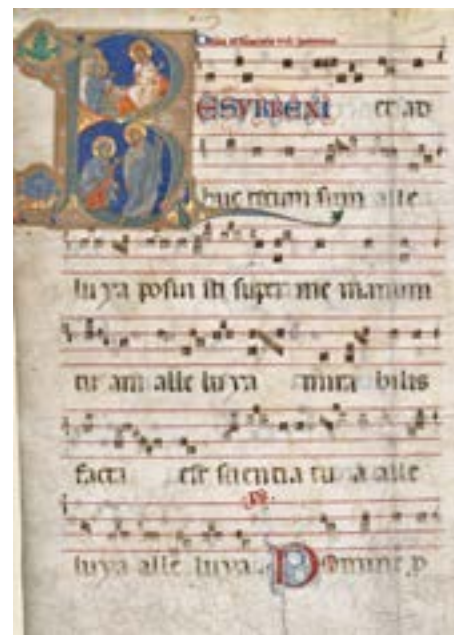 RESVRREXI et ad
huc tecum sum alle
lu ya posui sti super me manum
tu am alle lu ya mira bilis
facta est scientia tu a alle
luya alle luya. Domine p